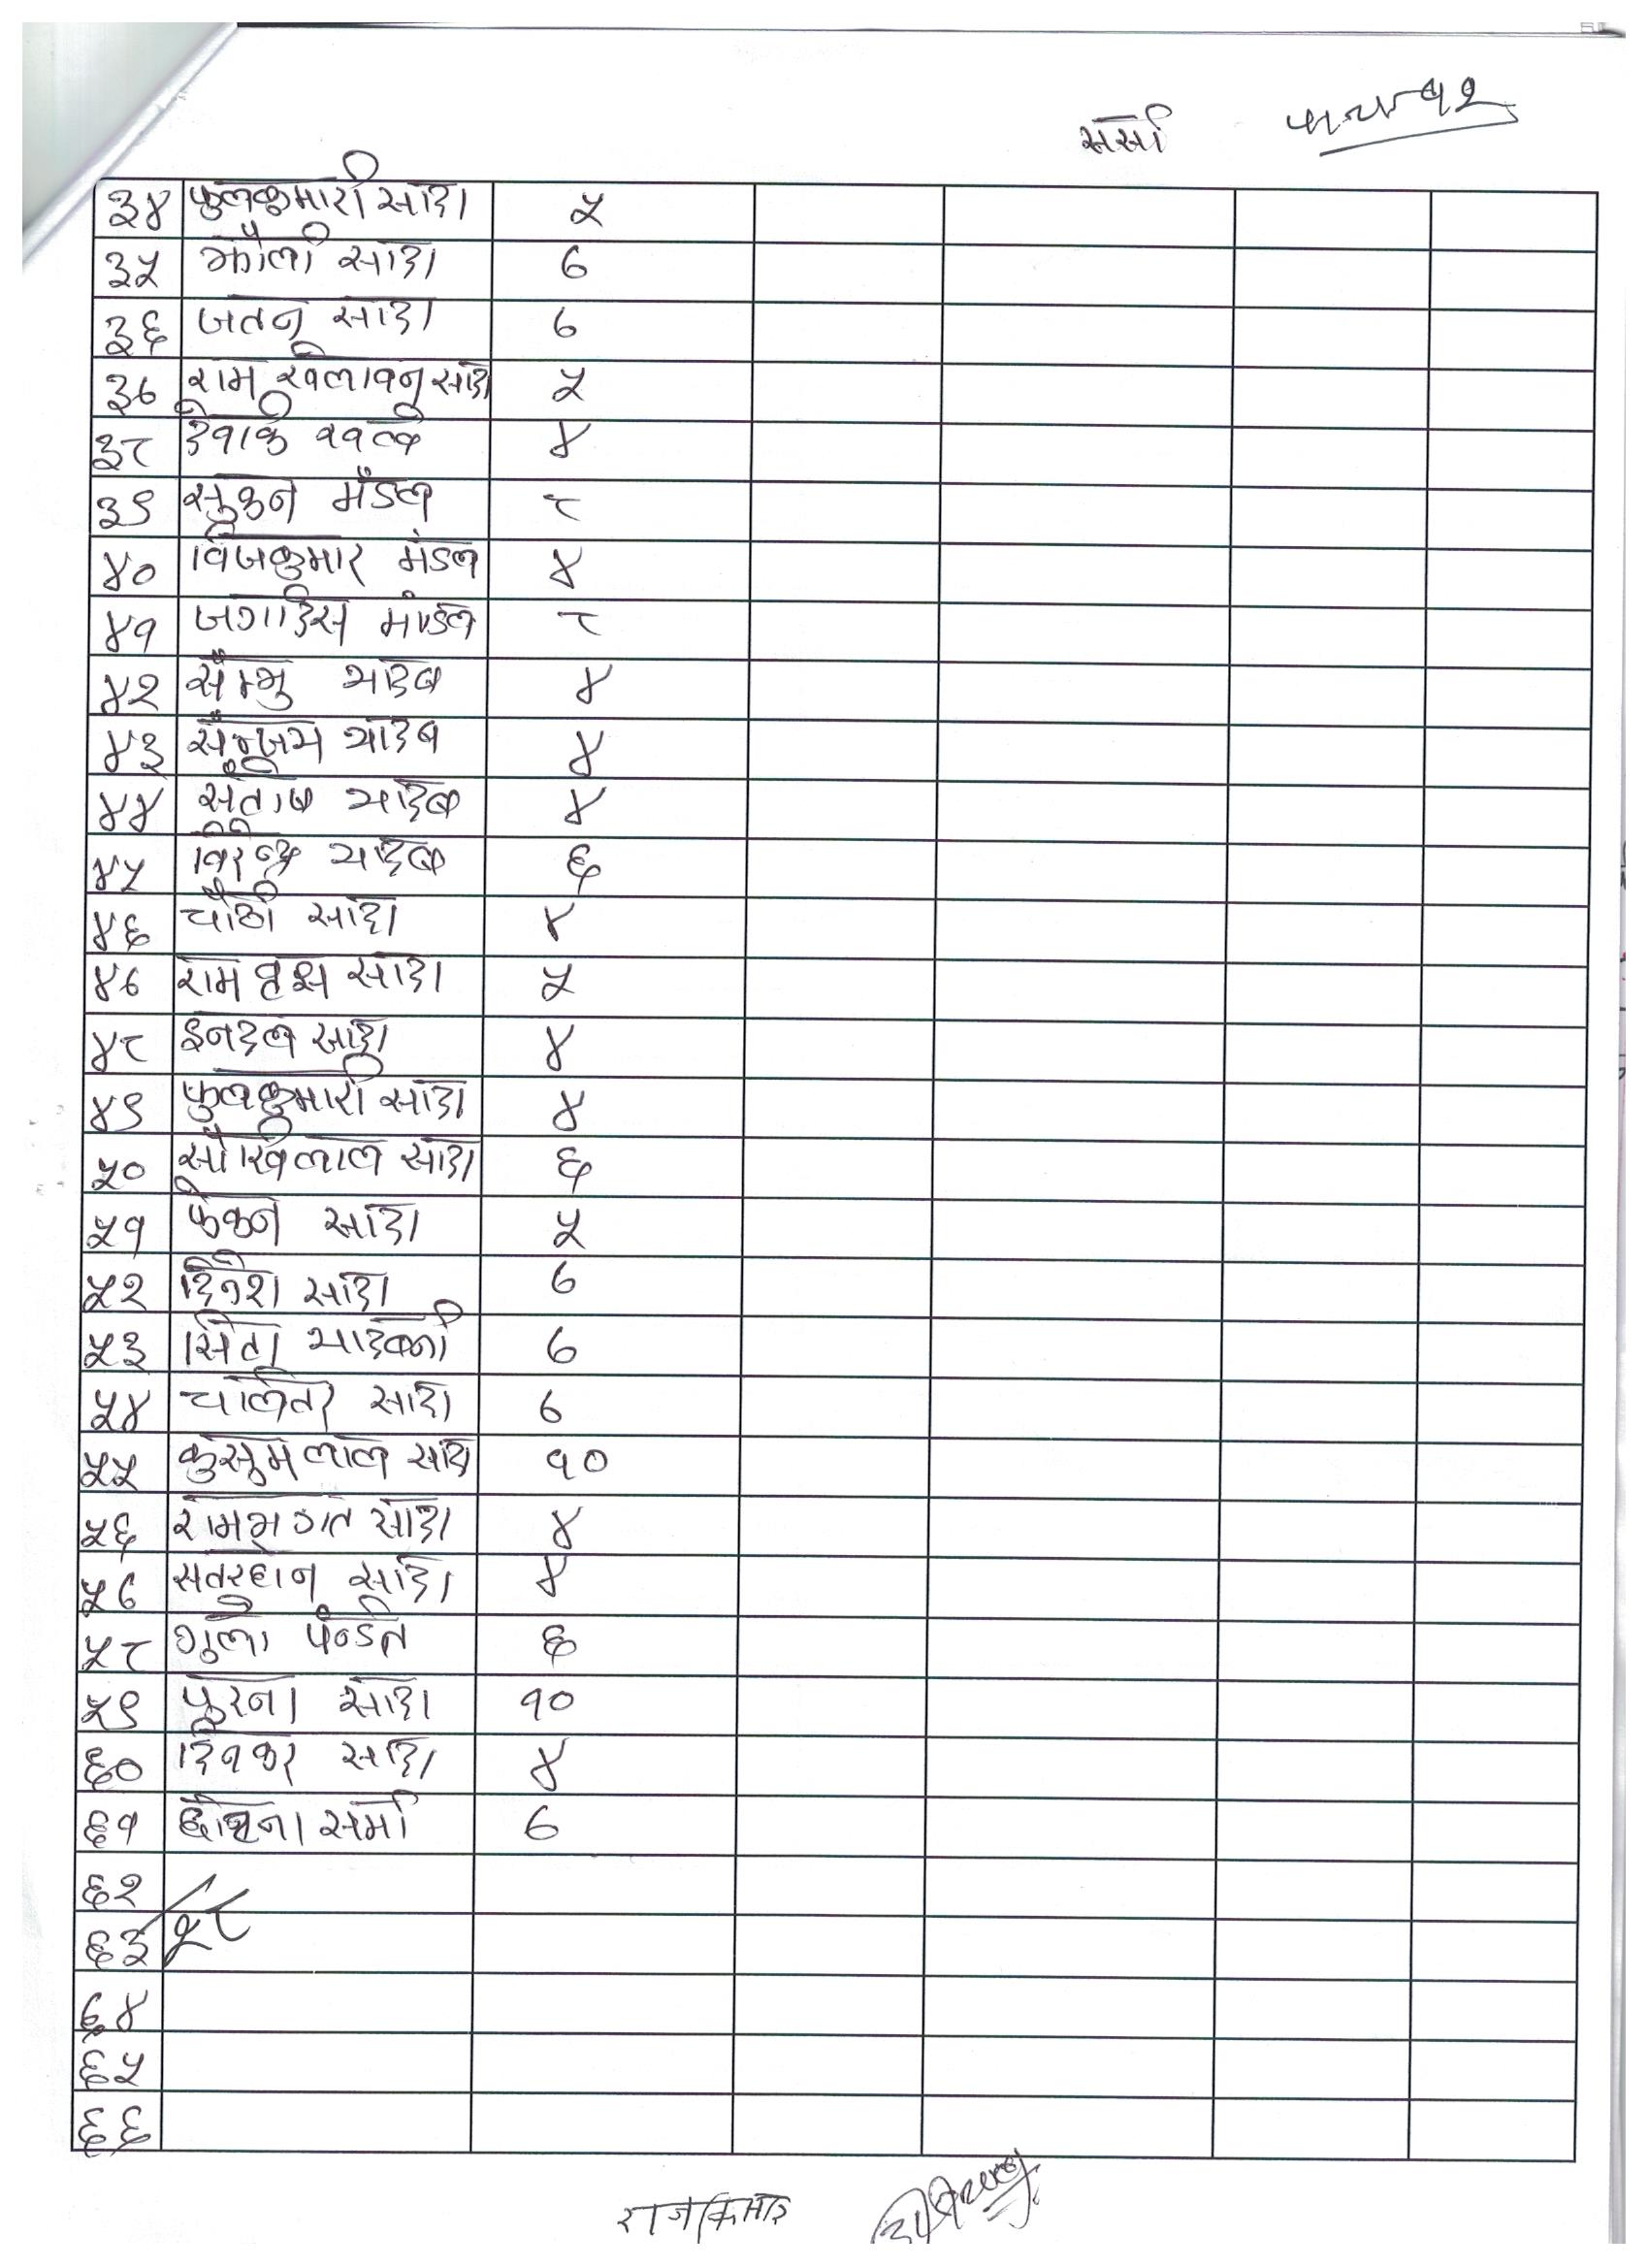 सर्सा
३४ फुलकुमारी सादा ५
३५ झौली सादा ७
३६ जतन सादा ७
३७ राम खेलावन सादा ५
३८ ४
३९ सुकन मंडल ८
४० विजकुमार मंडल ४
४१ जगदिस मण्डल ८
४२ सँम्भु यादव ४
४३ सँन्जय यादव ४
४४ संतोष यादव ४
४५ विरेन्द्र यादव ६
४६ चौठी सादा ४
४७ राम वृक्ष सादा ५
४८ इनदल सादा ४
४९ फुलकुमारी सादा ४
५० सौखिलाल सादा ६
५१ फेकन सादा ५
५२ दिनेश सादा ७
५३ सिता यादवनी ७
५४ चलितर सादा ७
५५ कुसुमलाल सादा १०
५६ रामभगत सादा ४
५७ सतरुधान सादा ४
५८ पण्डित ६
५९ फुरना सादा १०
६० दिनकर सादा ४
६१ सर्मा ७
६२
६३ २८
६४
६५
६६
राजकिमार